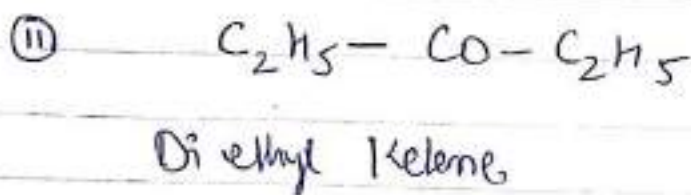 ⑪ C₂H₅ – CO – C₂H₅
Di ethyl Ketone